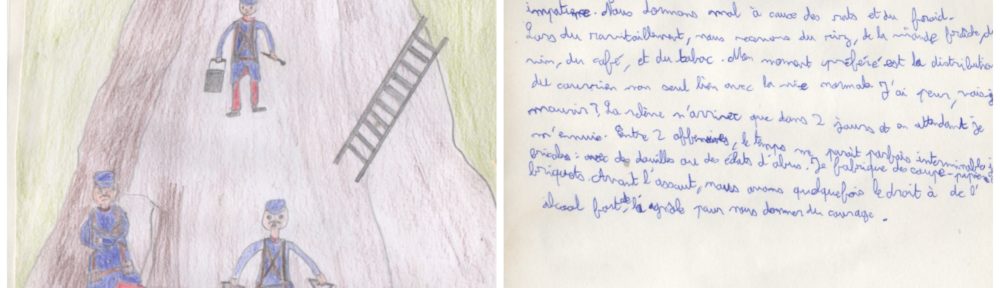 impatience. Nous dormons mal à cause des rats et du froid.
Lors du ravitaillement, nous recevons du riz, de la viande froide, du
vin, du café, et du tabac. Mon moment préféré est la distribution
du courrier mon seul lien avec la vie normale. J'ai peur, vais-je
mourir? La relève n'arrive que dans 2 jours et en attendant je
m'ennuie. Entre 2 offensives, le temps me parait parfois interminable, je
bricole: avec des douilles ou des éclats d'obus. Je fabrique des coupe-papiers
briquets. Avant l'assaut, nous avons quelquefois le droit à de l'
alcool fort, de la gnôle pour nous donner du courage.